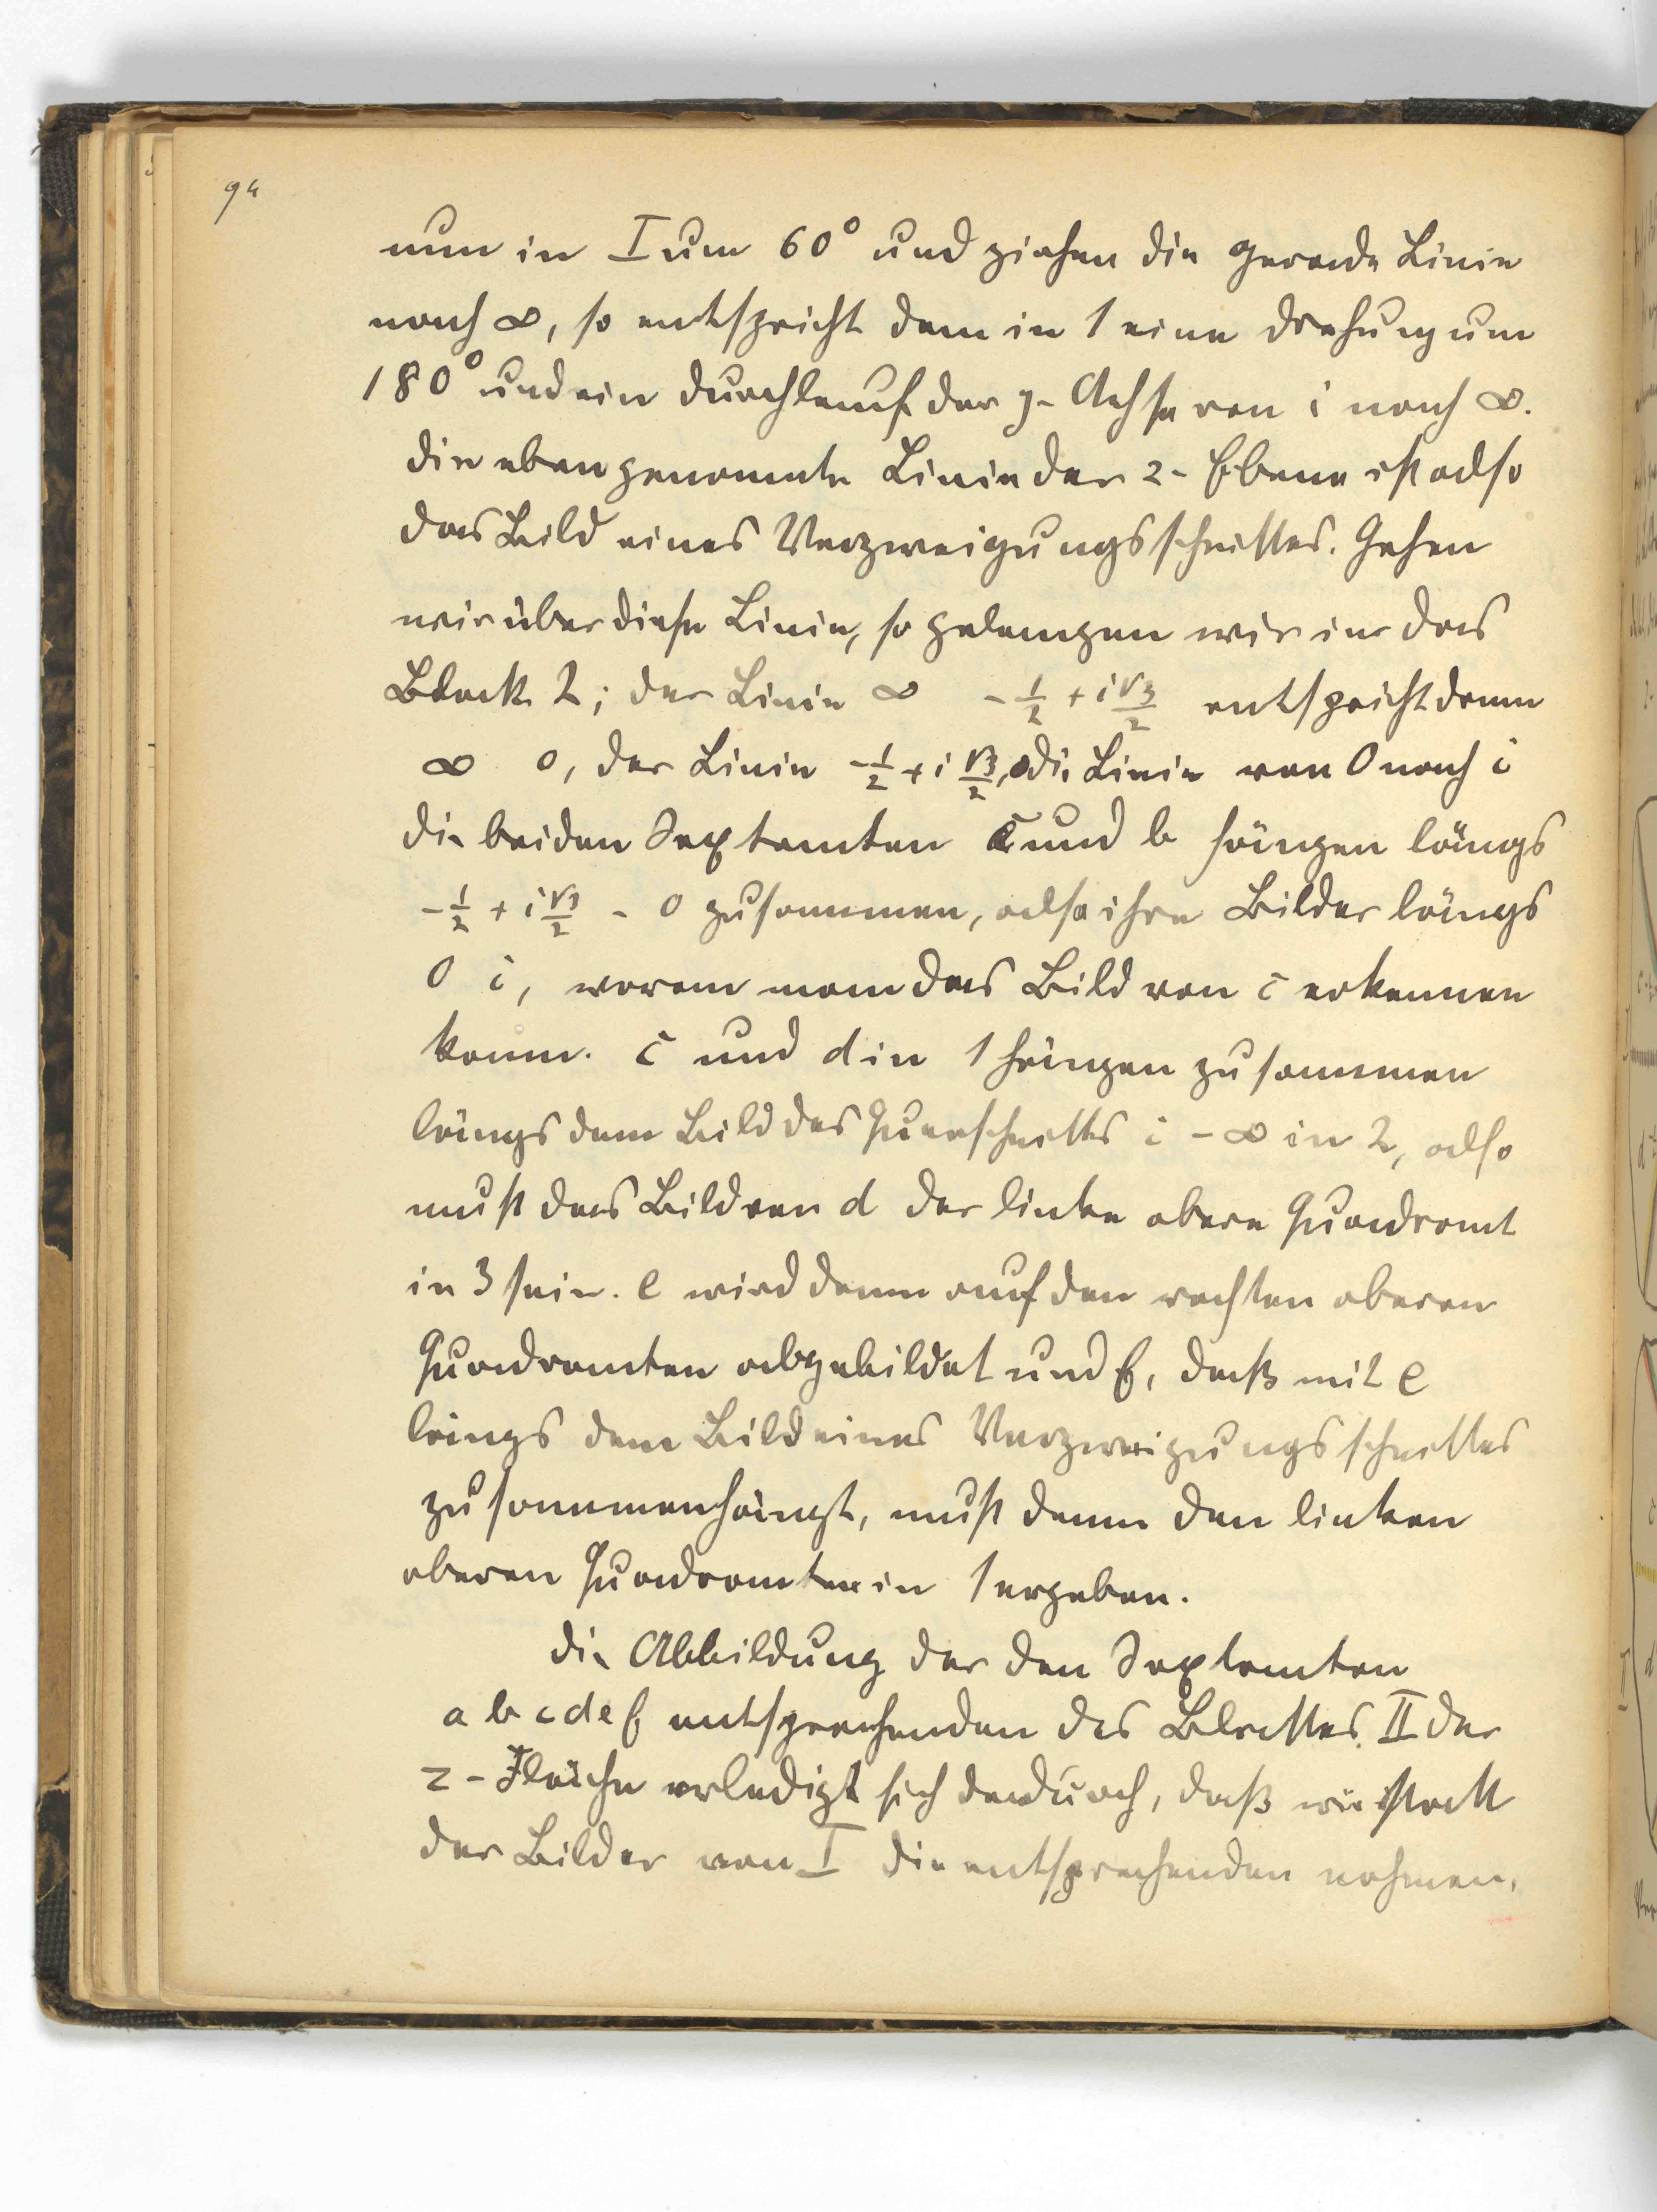 94
nun in I um 60° und ziehen die gerade Linie
nach ∞, so entspricht dem in 1 eine Drehung um
180° und ein Durchlauf der y-Achse von i nach ∞.
Die eben genannte Linie der z-Ebene ist also
das Bild eines Verzweigungsschnittes. Gehen
wir über diese Linie, so gelangen wir in das
Blatt 2; der Linie ∞ -1/2 + i√3/2 entspricht dann
∞ 0, der Linie -1/2 + i √3/2, 0 die Linie von 0 nach i
Die beiden Sextanten c und b hängen längs
-1/2 + i√3/2 - 0 zusammen, also ihre Bilder längs
0 i, woran man das Bild von c erkennen
kann. c und d in I hängen zusammen
längs dem Bild des Querschnitts i - ∞ in 2, also
muß das Bild von d der linke obere Quadrant
in 3 sein. e wird dann auf den rechten oberen
Quadranten abgebildet und f, daß mit e
längs dem Bild eines Verzweigungsschnittes
zusammenhängt, muß dann den linken
oberen Quadranten in 1 ergeben.
Die Abbildung der den Sextanten
a b c d e f entsprechenden des Blattes II der
z-Fläche erledigt sich dadurch, daß wir statt
der Bilder von I die entsprechenden nehmen,